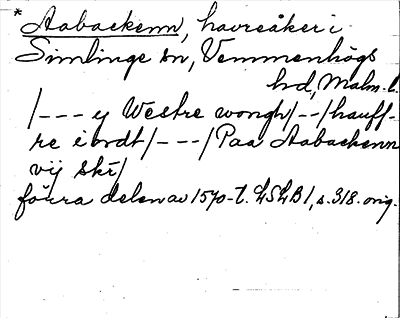 * Aabackenn, havreåker i
Simlinge sn, Vemmenhögs
hd, Malm. l.
/--- y Westre wongh/--/hauff-
re i ordt/---/Paa Aabackenn
vij skr/
förra delen av 1570-t. LSLB1, s. 318. orig.